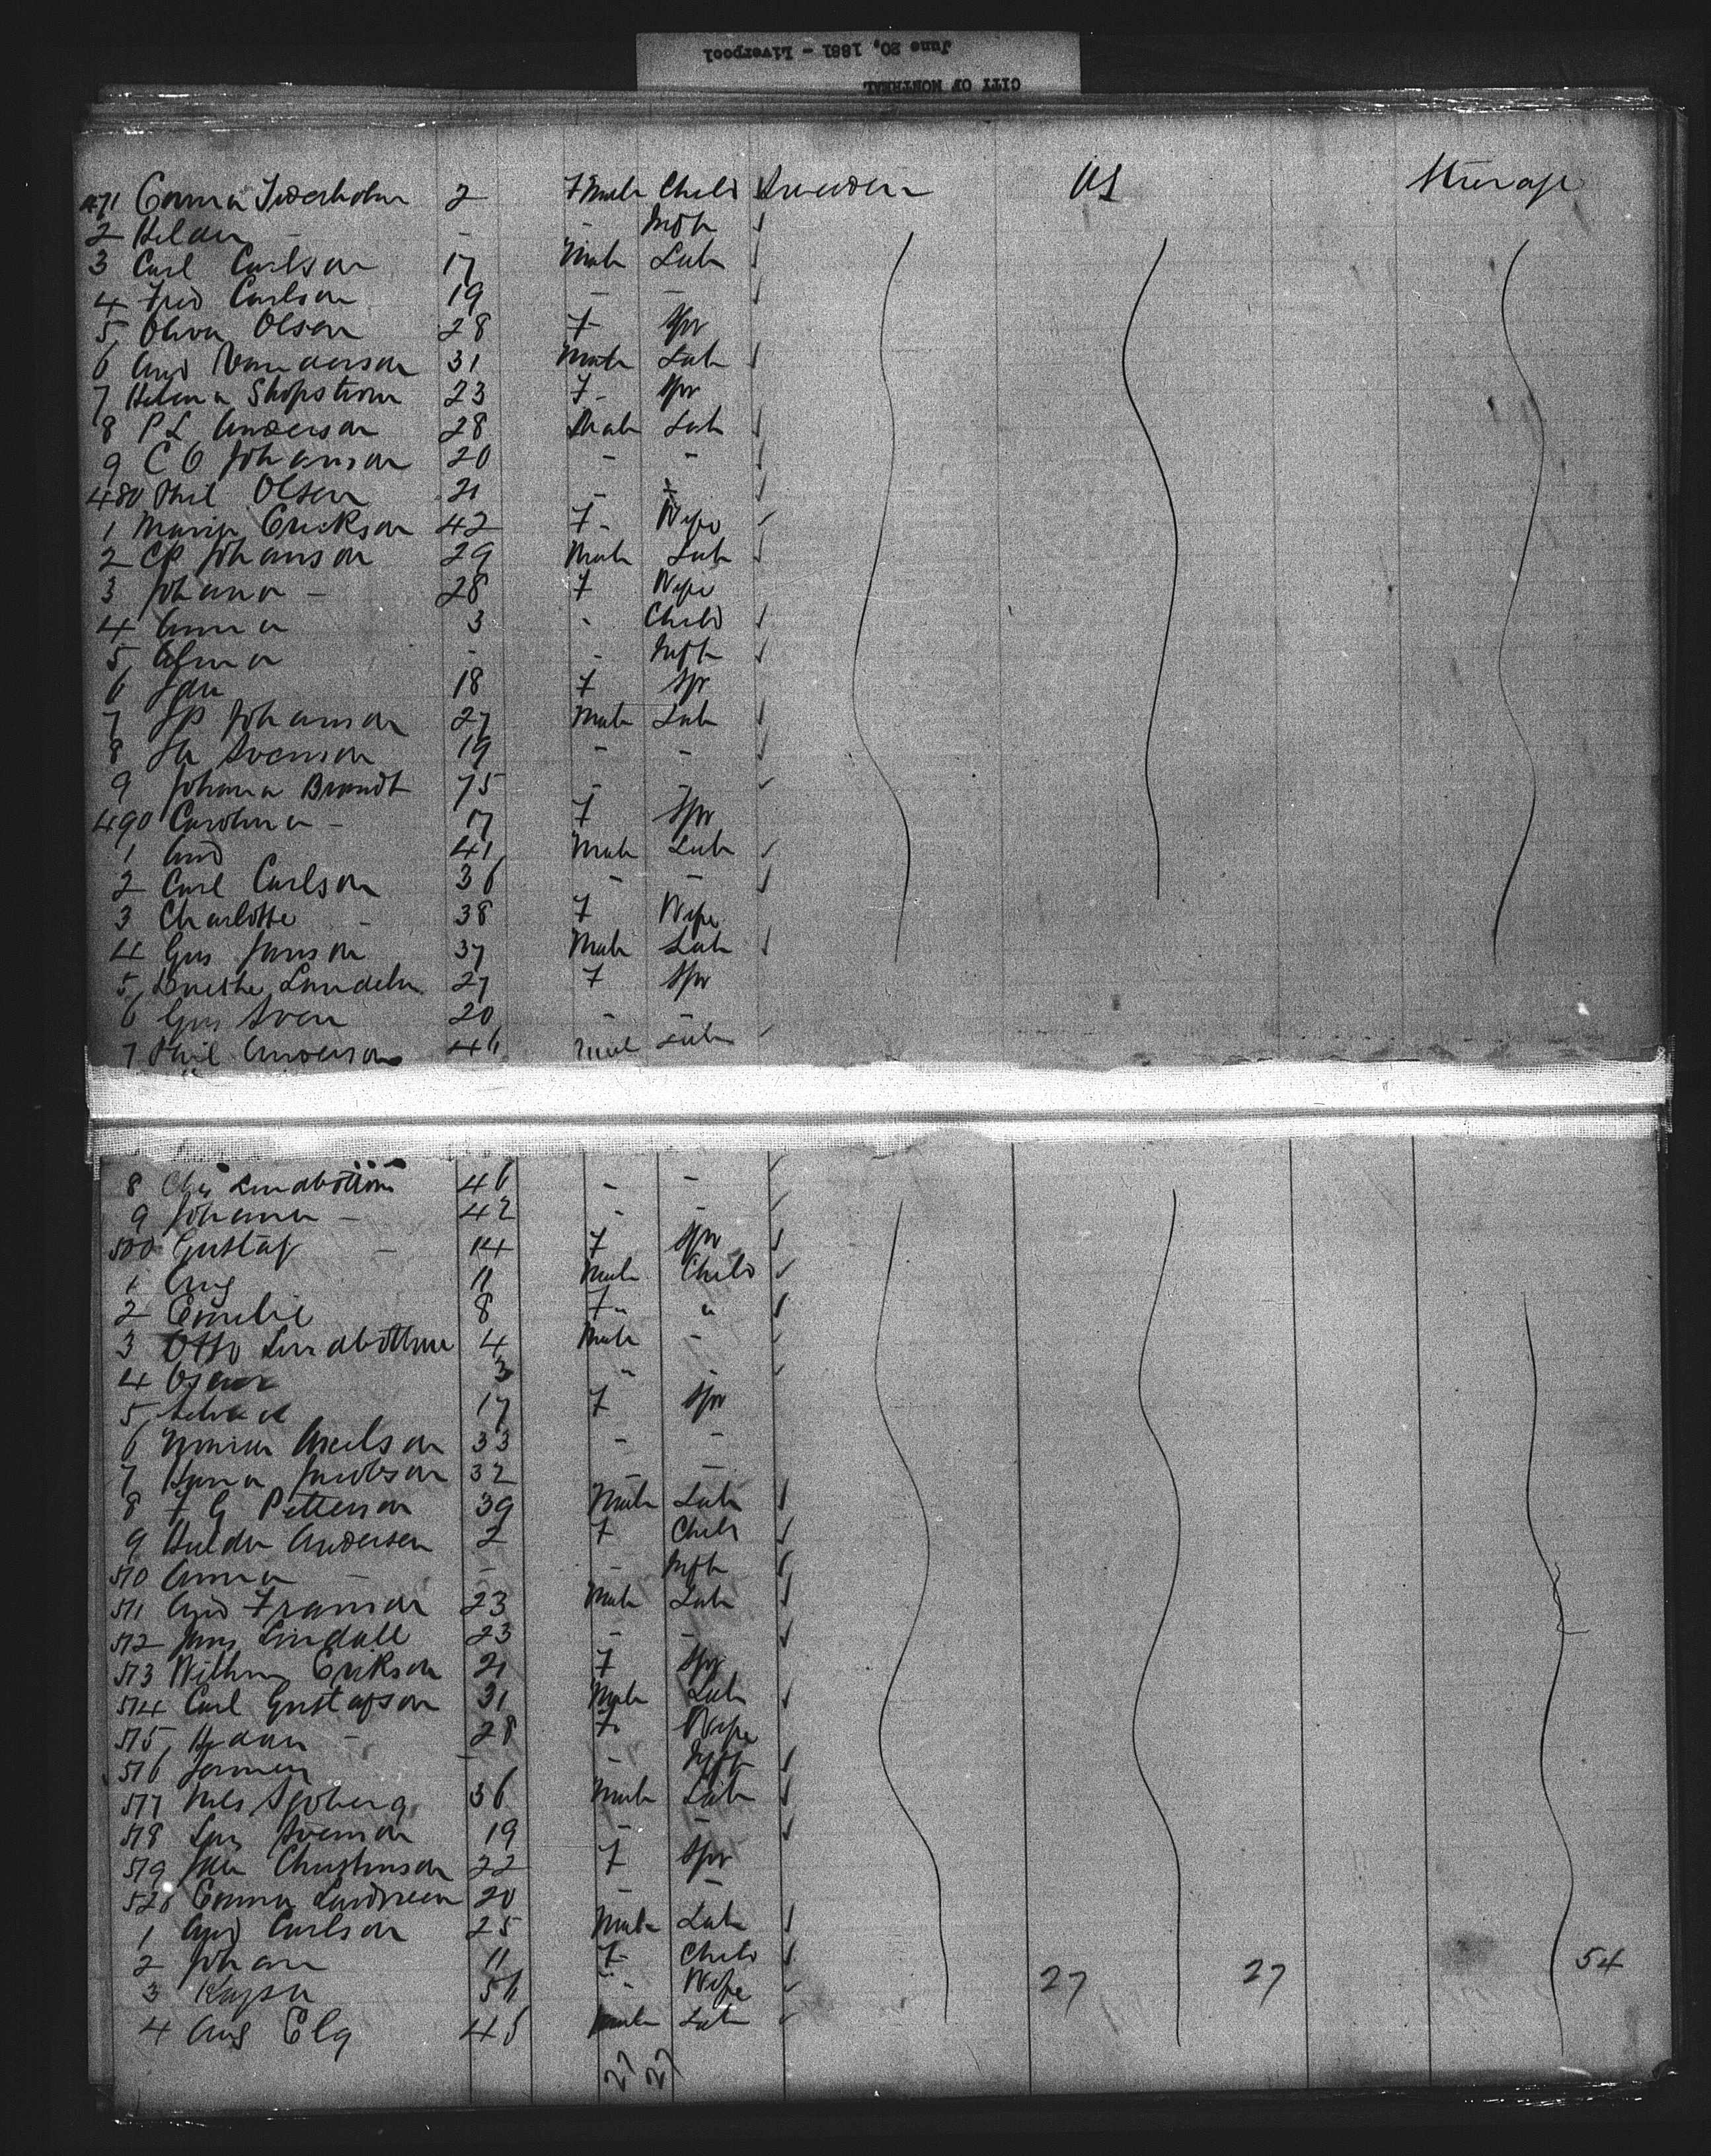 CITY OF MONTREAL
June 20, 1881 - Liverpool
471 Emma 2 Female Child Sweden US Steerage
2 Hilda - - - Inft
3 Carl Carlson 17 Male Lab
4 Fred Carlson 19 - -
5 Oliva Olsen 28 F- Spr
6 And 31 Male Lab
7 Helena 23 F- Spr
8 P L Anderson 28 Male Lab
9 C O Johanson 20 - -
480 Phil Olsen 21 - -
1 Maria Erickson 42 F- Wife
2 CP Johanson 29 Male Lab
3 Johana - 28 F Wife
4 Anna 3 - Child
5 Alma - - Inft
6 Ida 18 F Spr
7 JP Johanson 27 Male Lab
8 Svenson 19 - -
9 Johana Brandt 75 - -
490 Carolina - 17 F Spr
1 And 41 Male Lab
2 Carl Carlson 36 - -
3 Charlotte - 38 F Wife
4 Gus Janson 37 Male Lab
5 27 F Spr
6 Gus Sven 20 - -
7 Phil Anderson 46 Male Lab
8 46 - -
9 Johana - 42 - -
500 Gustaf - 14 F Spr
1 Aug 11 Male Child
2 Emelie 8 F- "
3 Otto 4 Male -
4 Oscar 3 " -
5 17 F Spr
6 33 - -
7 Jacobson 32 - -
8 F G Petterson 39 Male Lab
9 Hulda Andersen 2 F Child
510 Anna - - - Inft
511 And Franson 23 Male Lab
512 Lindall 23 - -
513 Erikson 21 F Spr
514 Carl Gustafson 31 Male Lab
515 - 28 F- Wife
516 - - Inft
517 Nels Sjoberg 36 Male Lab
518 Svenson 19 - -
519 22 F Spr
520 Emma 20 - -
1 And Carlson 25 Male Lab
2 Johan 11 F- Child
3 Kajsa 56 " Wife
4 Aug Elg 45 Male Lab
27 27 54
27 27